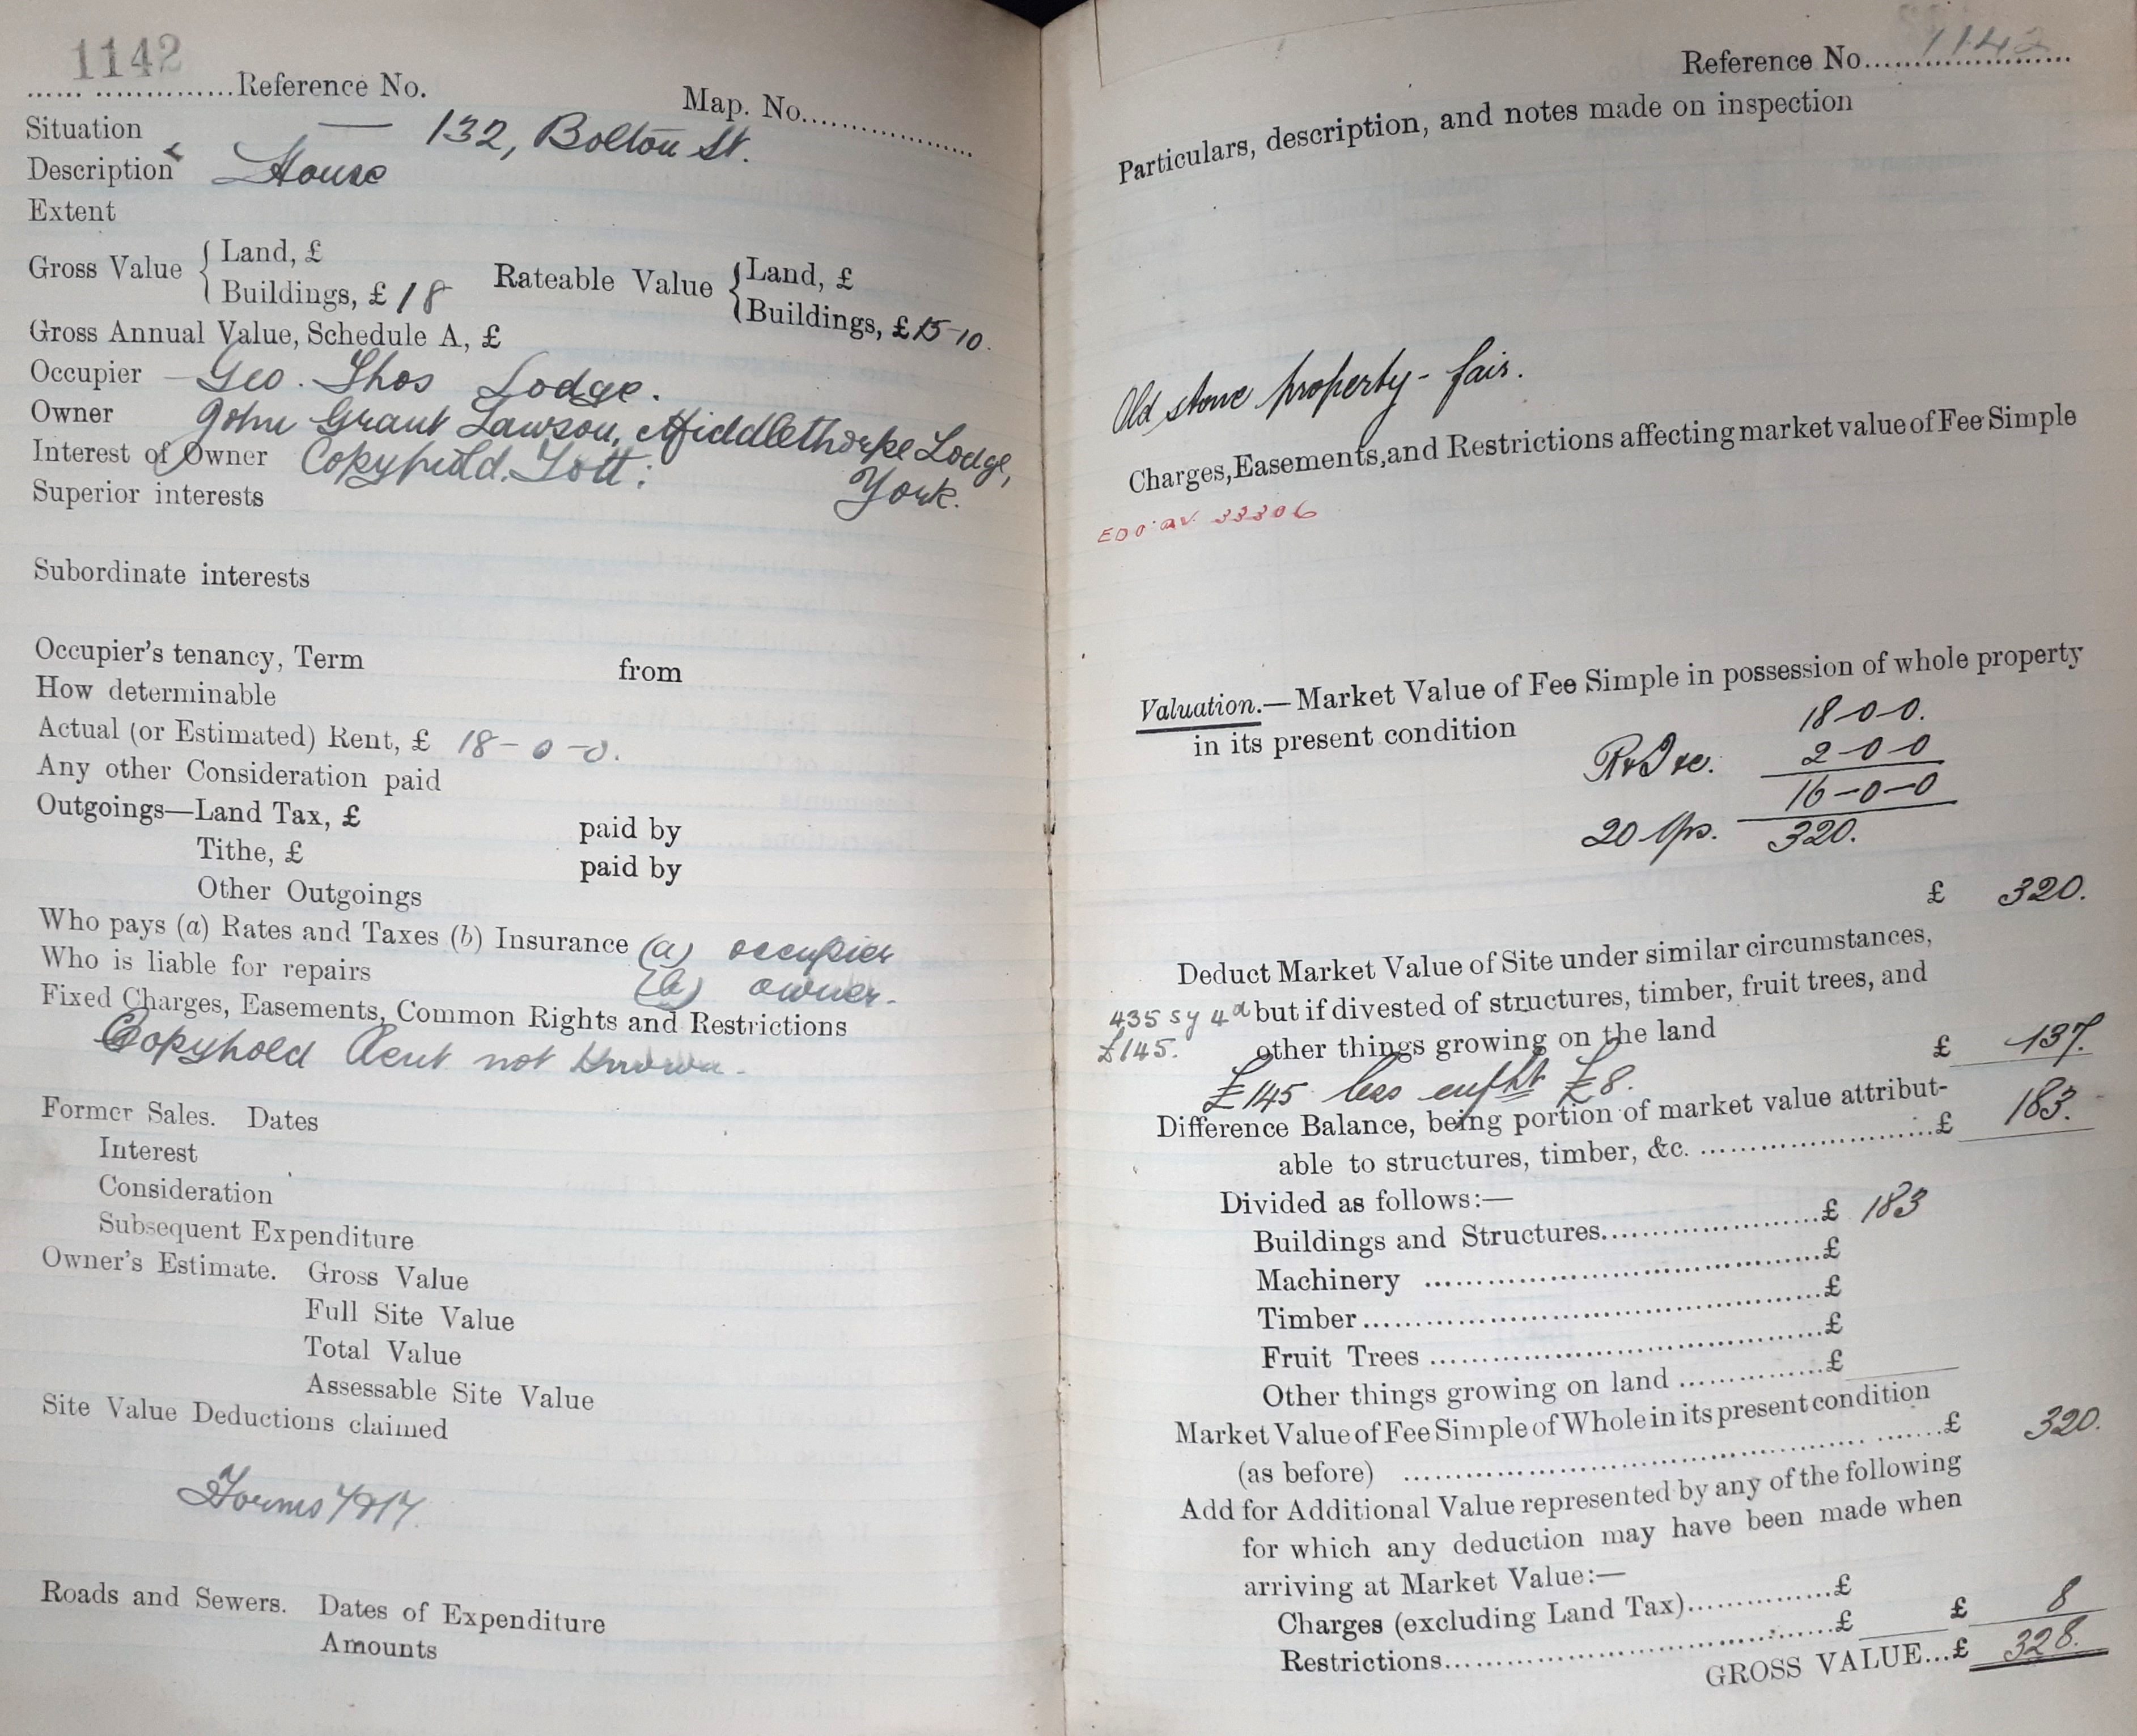 1142
...... ..............Reference No.
Map. No..................
Situation — 132, Bolton St.
Description House
Extent
Gross Value { Land, £
Buildings, £ 18
Rateable Value { Land, £
Buildings, £ 15-10.
Gross Annual Value, Schedule A, £
Occupier — Geo. Thos Lodge.
Owner John Grant Lawson, Middlethorpe Lodge,
York.
Interest of Owner Copyhold. Tott:
Superior interests
Subordinate interests
Occupier's tenancy, Term from
How determinable
Actual (or Estimated) Rent, £ 18-0-0.
Any other Consideration paid
Outgoings—Land Tax, £ paid by
Tithe, £ paid by
Other Outgoings
Who pays (a) Rates and Taxes (b) Insurance (a) occupier
Who is liable for repairs (b) owner.
Fixed Charges, Easements, Common Rights and Restrictions
Copyhold Rent not known.
Former Sales. Dates
Interest
Consideration
Subsequent Expenditure
Owner's Estimate. Gross Value
Full Site Value
Total Value
Assessable Site Value
Site Value Deductions claimed
Forms 7 & 17
Roads and Sewers. Dates of Expenditure
Amounts
Reference No. 1142
Particulars, description, and notes made on inspection
Old stone property - fair.
Charges, Easements, and Restrictions affecting market value of Fee Simple
33306
Valuation.—Market Value of Fee Simple in possession of whole property
in its present condition
18-0-0.
R & I &c. 2-0-0
16-0-0
20 Yps. 320.
£ 320.
Deduct Market Value of Site under similar circumstances,
435 sy 4d but if divested of structures, timber, fruit trees, and
£145. other things growing on the land £ 137.
£145 less enfht £8.
Difference Balance, being portion of market value attribut-
able to structures, timber, &c. .........................£ 183.
Divided as follows:—
Buildings and Structures.......................£ 183
Machinery .......................................£
Timber.............................................£
Fruit Trees .......................................£
Other things growing on land ...............£
Market Value of Fee Simple of Whole in its present condition
(as before) ............................................£ 320.
Add for Additional Value represented by any of the following
for which any deduction may have been made when
arriving at Market Value:—
Charges (excluding Land Tax)...............£
Restrictions.......................................£ £ 8
GROSS VALUE...£ 328.